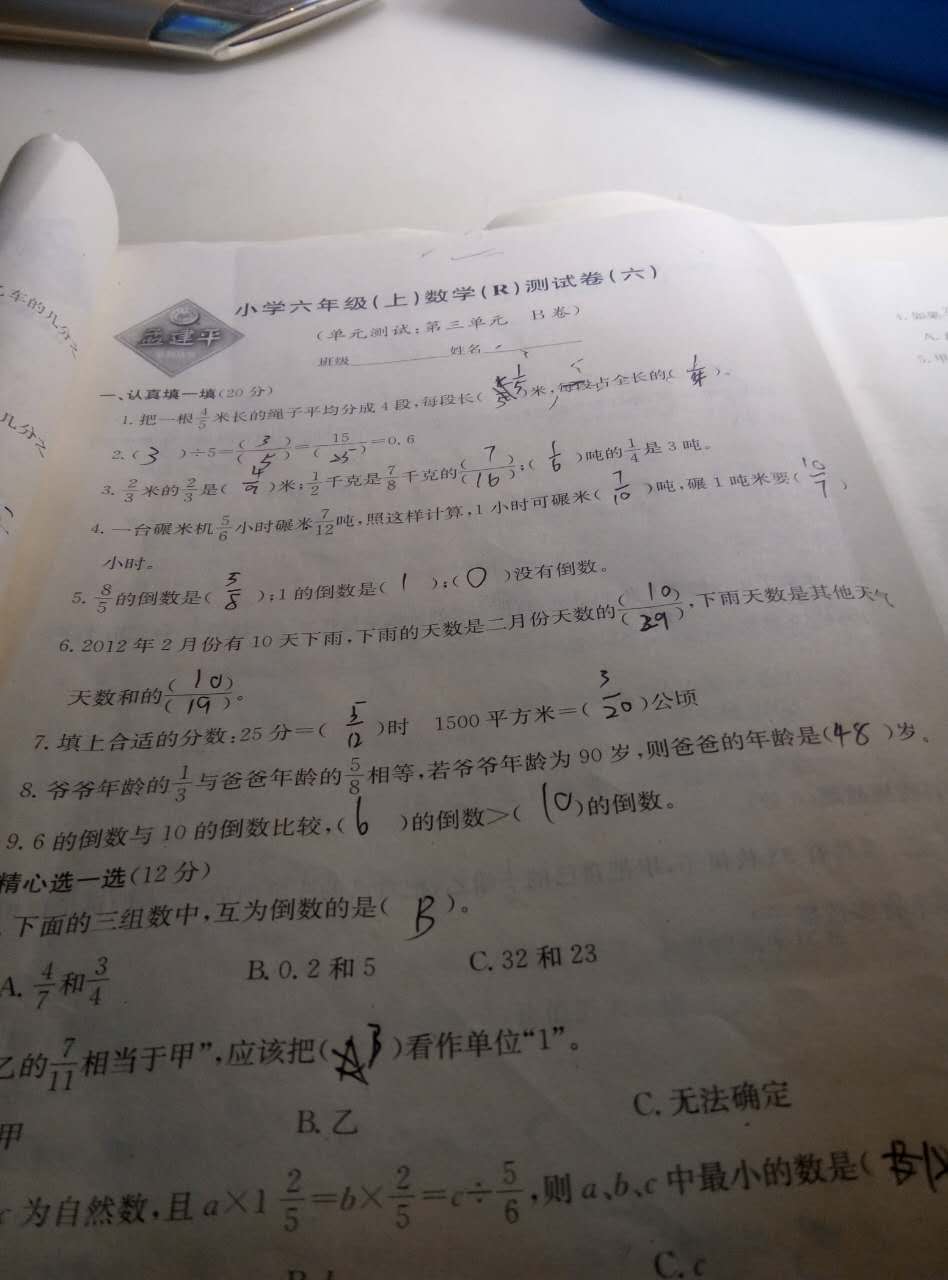 车的几分之
几分之
小学六年级(上)数学(R)测试卷(六)
(单元测试:第三单元 B卷)
孟建平
班级 姓名
一、认真填一填(20分)
1. 把一根4/5米长的绳子平均分成4段,每段长( 1/5 )米,每段占全长的( 1/4 )。
2. ( 3 )÷5=( 3 )/( 5 )=15/( 25 )=0.6
3. 2/3米的2/3是( 4/9 )米;1/2千克是7/8千克的( 7 )/( 16 );( 1/6 )吨的1/4是3吨。
4. 一台碾米机5/6小时碾米7/12吨,照这样计算,1小时可碾米( 7/10 )吨,碾1吨米要( 10/7 )
小时。
5. 8/5的倒数是( 5/8 );1的倒数是( 1 );( 0 )没有倒数。
6. 2012年2月份有10天下雨,下雨的天数是二月份天数的( 10 )/( 29 ),下雨天数是其他天气
天数和的( 10 )/( 19 )。
7. 填上合适的分数:25分=( 5/12 )时 1500平方米=( 3/20 )公顷
8. 爷爷年龄的1/3与爸爸年龄的5/8相等,若爷爷年龄为90岁,则爸爸的年龄是( 48 )岁。
9. 6的倒数与10的倒数比较,( 6 )的倒数>( 10 )的倒数。
精心选一选(12分)
下面的三组数中,互为倒数的是( B )。
A. 4/7和3/4 B. 0.2和5 C. 32和23
乙的7/11相当于甲”,应该把( B )看作单位“1”。
甲 B. 乙 C. 无法确定
c为自然数,且a×1 2/5=b×2/5=c÷5/6,则a、b、c中最小的数是(
C. c